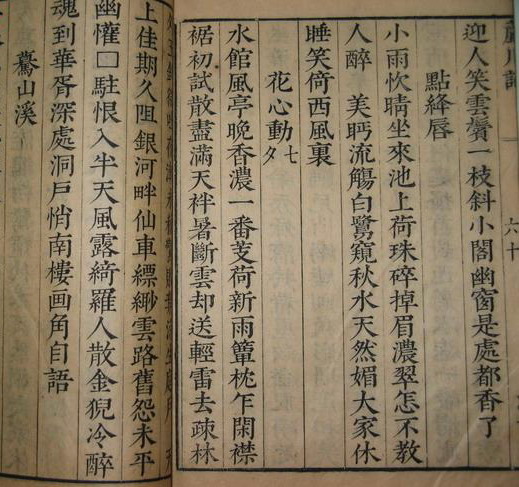 蘆川詞
六十
迎人笑雲鬟一枝斜小閣幽窗是處都香了
點絳唇
小雨忺晴坐來池上荷珠碎掉眉濃翠怎不教
人醉　美盻流觴白鷺窺秋水天然媚大家休
睡笑倚西風裏
花心動七夕
水館風亭晚香濃一番芰荷新雨簟枕乍閑襟
裾初試散盡滿天袢暑斷雲却送輕雷去疎林
上佳期久阻銀河畔仙車縹緲雲路舊怨未平
幽懽□駐恨入半天風露綺羅人散金猊冷醉
魂到華胥深處洞戶悄南樓画角自語
驀山溪